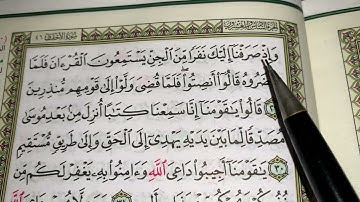 وَإِذْ صَرَفْنَا إِلَيْكَ نَفَرًا مِّنَ الْجِنِّ يَسْتَمِعُونَ الْقُرْءَانَ فَلَمَّا
حَضَرُوهُ قَالُوا أَنصِتُوا فَلَمَّا قُضِيَ وَلَّوْا إِلَىٰ قَوْمِهِم مُّنذِرِينَ
٢٩ قَالُوا يَٰقَوْمَنَا إِنَّا سَمِعْنَا كِتَٰبًا أُنزِلَ مِنۢ بَعْدِ مُوسَىٰ
مُصَدِّقًا لِّمَا بَيْنَ يَدَيْهِ يَهْدِي إِلَى الْحَقِّ وَإِلَىٰ طَرِيقٍ مُّسْتَقِيمٍ
٣٠ يَٰقَوْمَنَا أَجِيبُوا دَاعِيَ اللَّهِ وَءَامِنُوا بِهِ يَغْفِرْ لَكُم مِّن